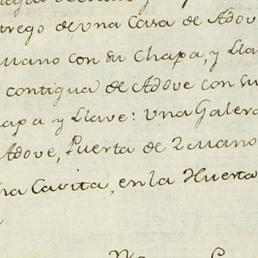 trego de una Casa de Adove
mano con su Chapa, y Lla
contigua de Adove con su
apa y Llave: una Galera
Adove, Puerta de 2 mano
na Casita, en la Huerta